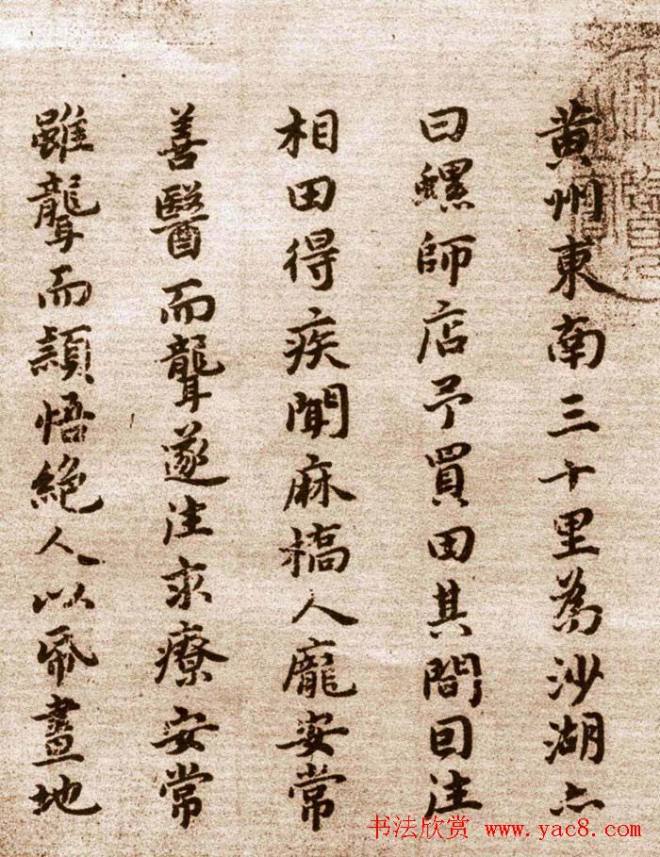 黄州東南三十里為沙湖亦
曰螺師店予買田其間因往
相田得疾聞麻橋人龐安常
善醫而聾遂往求療安常
雖聾而穎悟絕人以帋畫地
书法欣赏 www.yac8.com